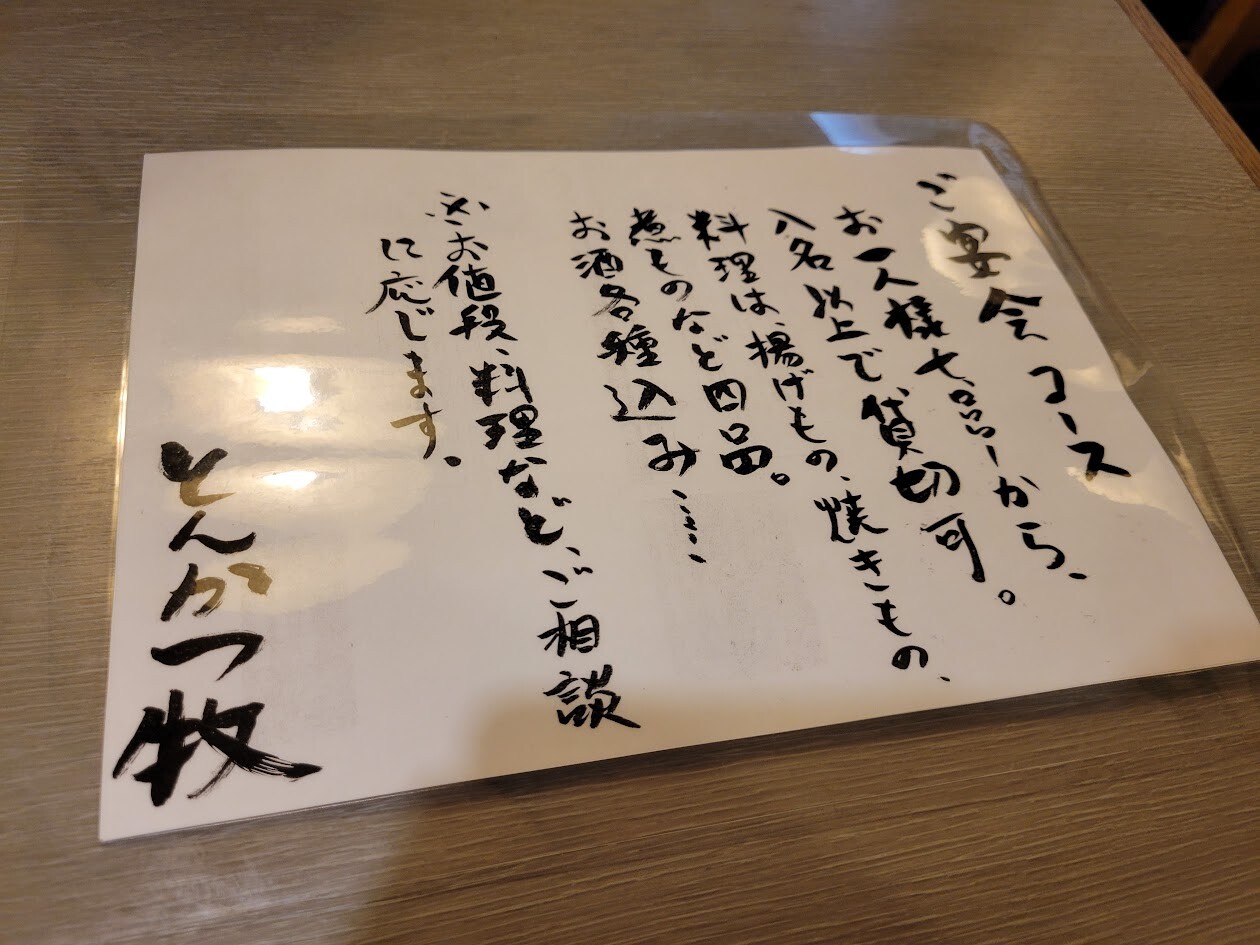 ご宴会コース
お一人様七品ーから、
八名以上で貸切可。
料理は、揚げもの、焼きもの、
煮ものなど四品。
お酒各種込み……
※お値段、料理など、ご相談
に応じます。
とんかつ牧